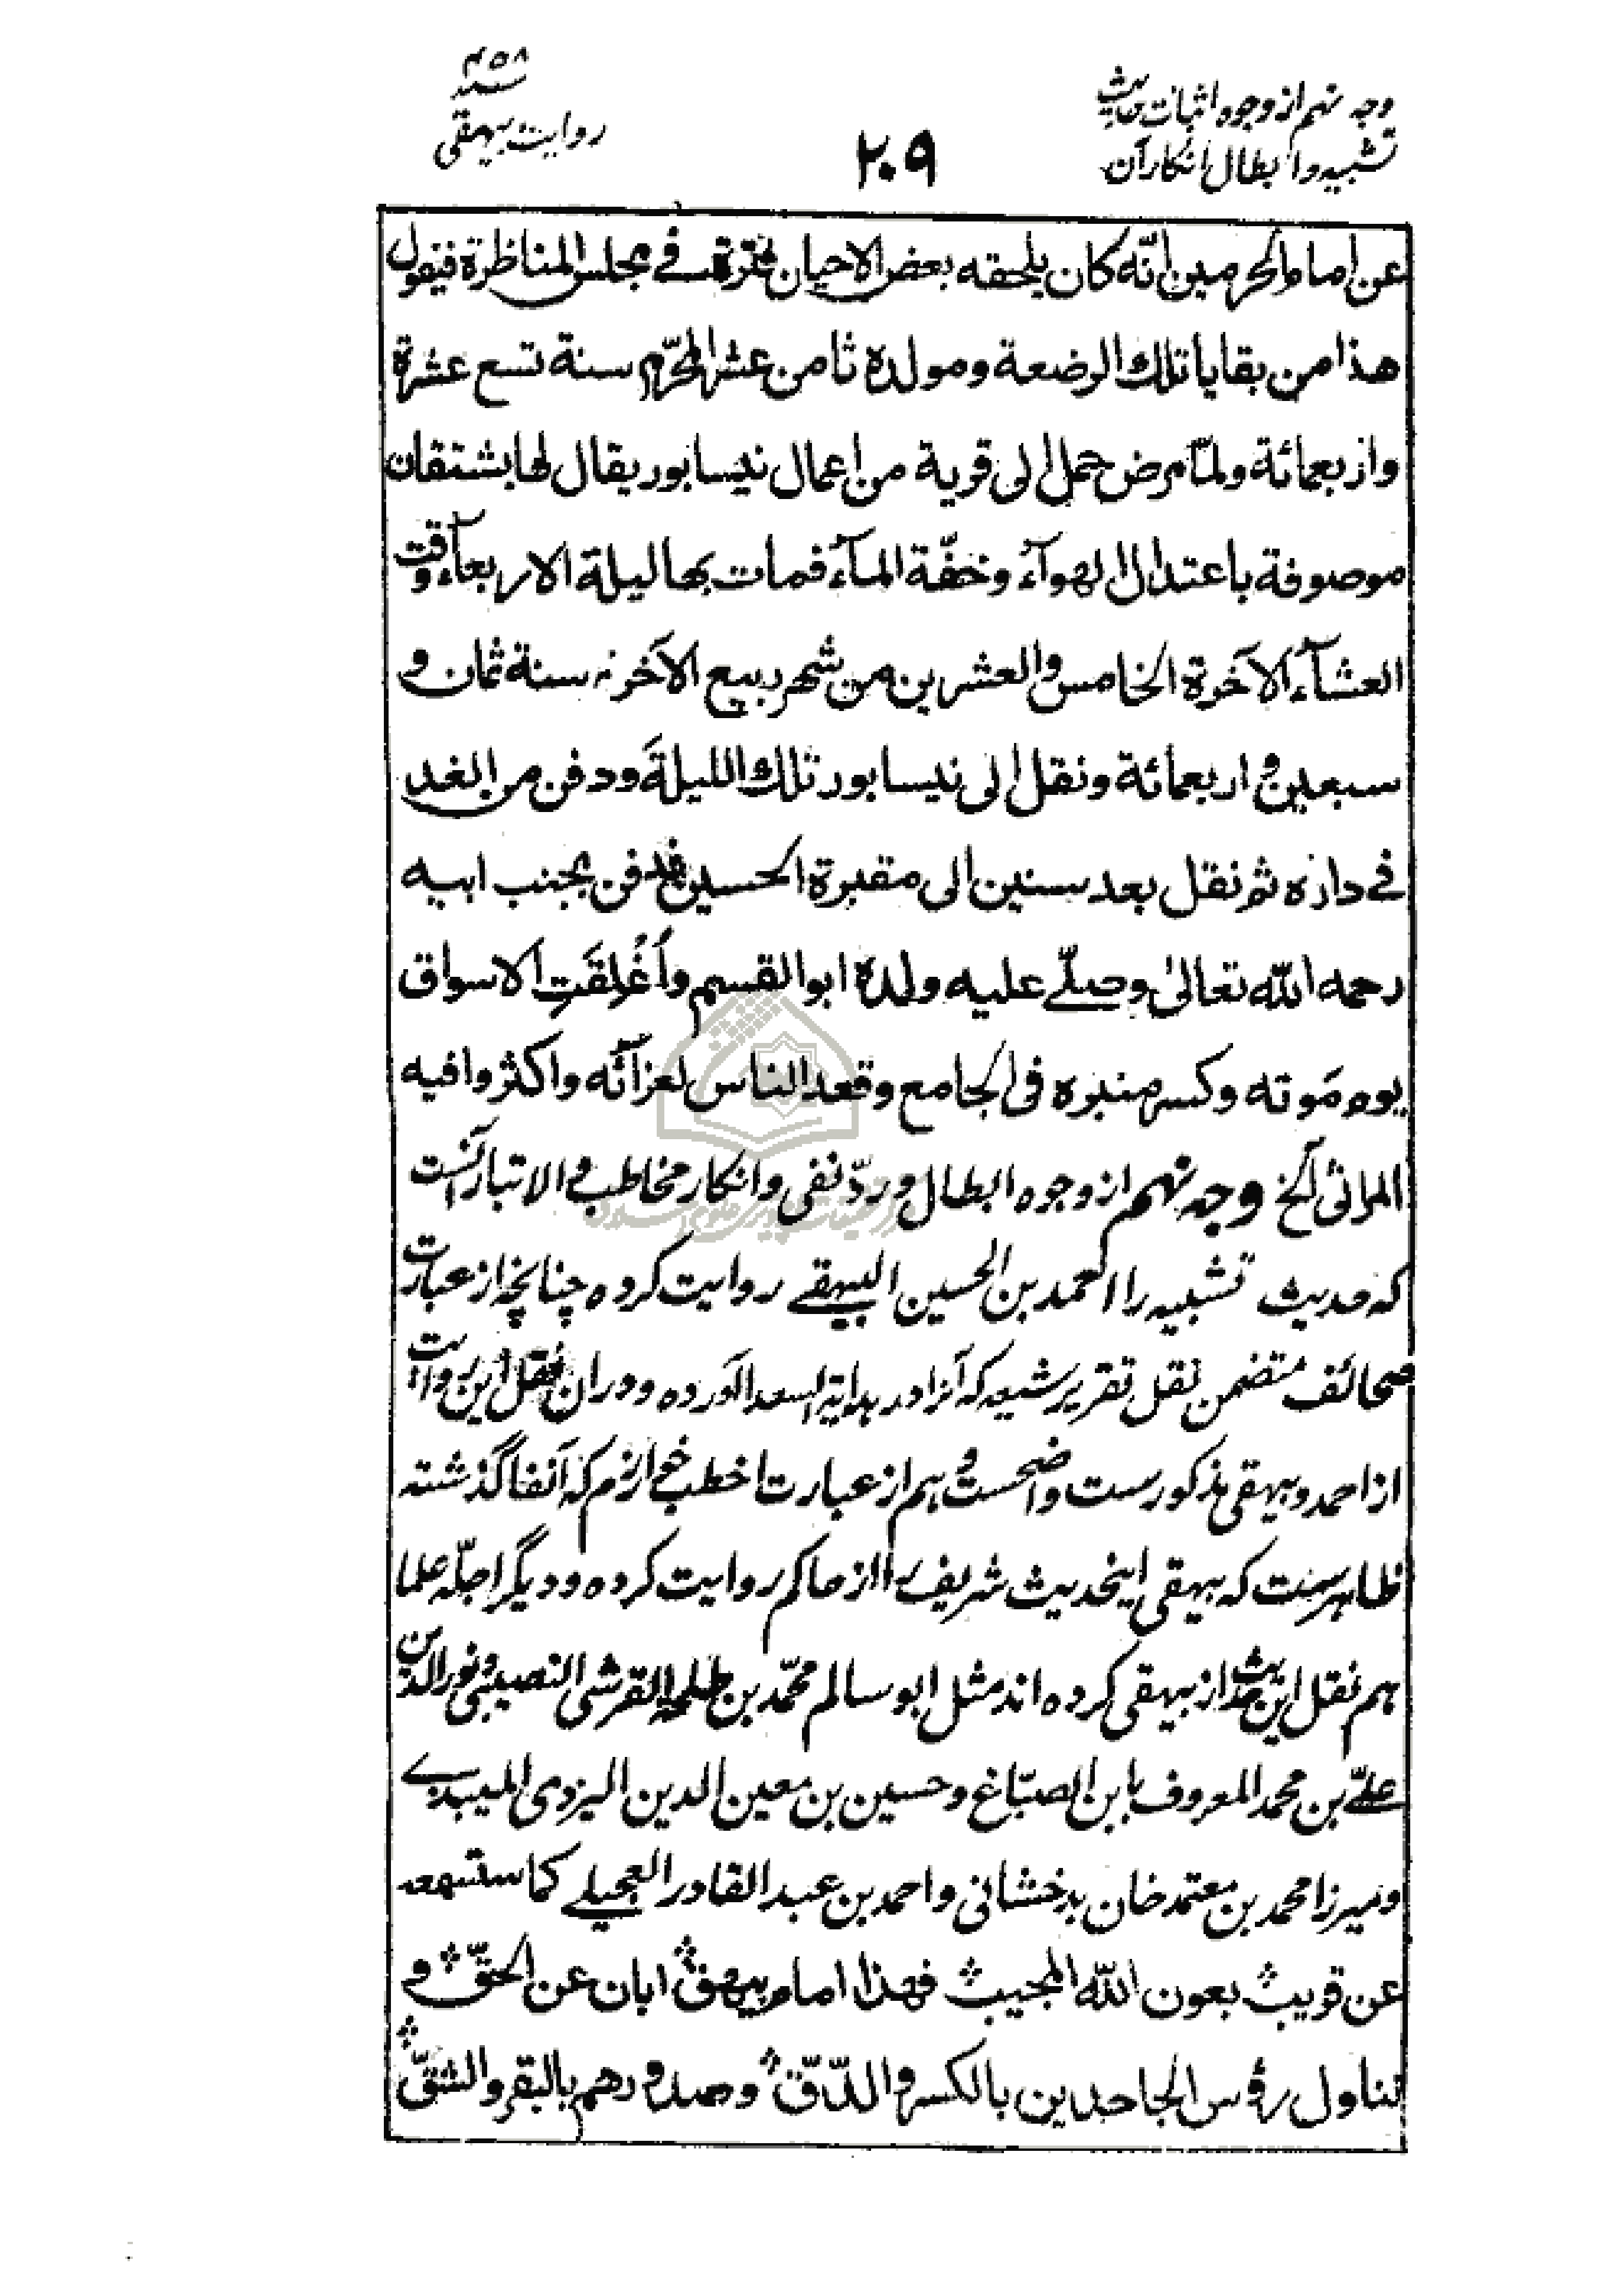 وجه نهم از وجوه اثبات حدیث
تشبیه و ابطال انکار آن
۲۰۹
۴۵۸
سنه
روایت بیهقی
عن امام الحرمین انّه کان یلحقه بعض الاحیان فترة فے مجلس المناظرة فیقول
هذا من بقایا تلك الرضعة ومولده ثامن عشر المحرّم سنة تسع عشرة
واربعمائة ولمّا مرض حمل الی قریة من اعمال نیسابور یقال لها بشتقان
موصوفة باعتدال الهوآء وخفّة المآء فمات بها لیلة الاربعآء وقت
العشآء الآخرة الخامس والعشرین من شهر ربیع الآخر سنة ثمان و
سبعین و اربعمائة ونقل الی نیسابور تلك اللیلة ودفن من الغد
فے داره ثم نقل بعد سنین الی مقبرة الحسین فدفن بجنب ابیه
رحمه الله تعالیٰ وصلّے علیه ولده ابو القسم واُغُلِقَتِ الاسواق
یوم مَوته وکسر منبره فی الجامع وقعد الناس لعزآئه واکثروا فیه
المراثی الخ وجه نهم از وجوه ابطال و ردّ نفی وانکار مخاطب والا تبار آنست
که حدیث تشبیه را احمد بن الحسین البیهقے روایت کرده چنانچه از عبارت
صحائف متضمن نقل تقریر شیعه که آنرا در هدایة السعدا آورده ودران نقل این روایت
از احمد و بیهقی مذکورست واضحست و هم از عبارت اخطب خوارزم که آنفا گذشته
ظاهرست که بیهقی اینحدیث شریف را از حاکم روایت کرده و دیگر اجلّه علما
هم نقل این حدیث از بیهقی کرده اند مثل ابو سالم محمّد بن طلحة القرشی النصیبی و نور الدین
علیّ بن محمد المعروف بابن الصبّاغ وحسین بن معین الدین الیزدی المیبدے
ومیرزا محمد بن معتمد خان بدخشانی واحمد بن عبد القادر العجیلے کما ستسمعه
عن قریب بعون الله المجیب فهذا امام بیهق ابان عن الحقّ و
تناول رؤس الجاحدین بالکسر والدّقّ وصدورهم بالبقر والشقّ